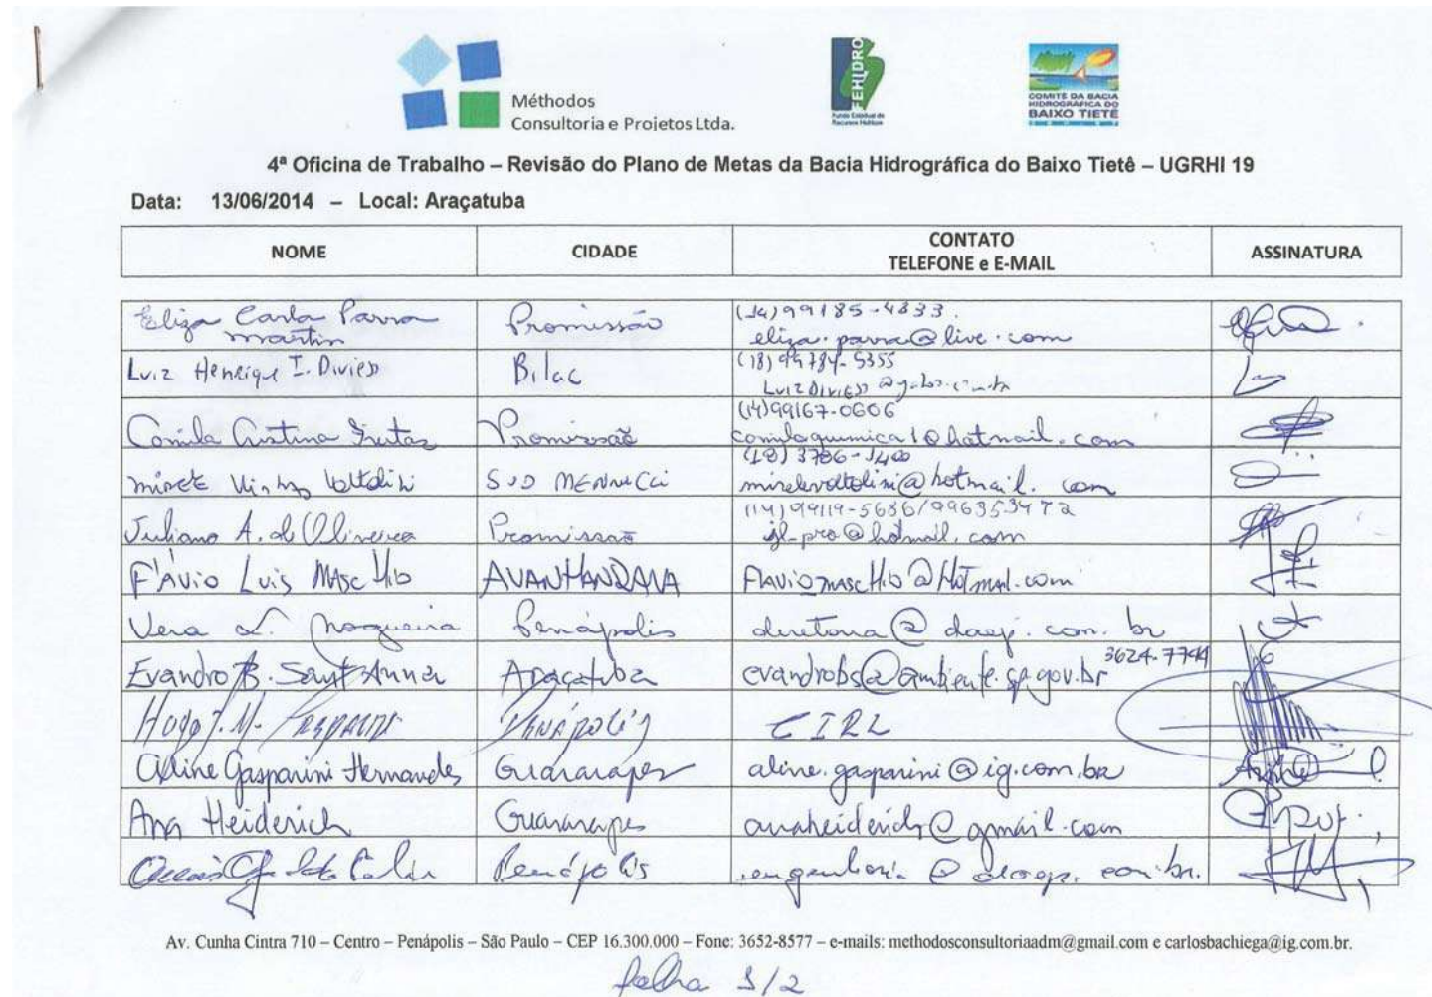 Méthodos
Consultoria e Projetos Ltda.
FEHIDRO
Fundo Estadual de
Recursos Hídricos
COMITÊ DA BACIA
HIDROGRÁFICA DO
BAIXO TIETÊ
4ª Oficina de Trabalho – Revisão do Plano de Metas da Bacia Hidrográfica do Baixo Tietê – UGRHI 19
Data: 13/06/2014 – Local: Araçatuba
NOME CIDADE CONTATO TELEFONE e E-MAIL ASSINATURA
Eliza Carla Parra Martin Promissão (14) 99185-4333. eliza.parra@live.com
Luiz Henrique I. Diviesо Bilac (18) 99784-5355
Camila Cristina Freitas Promissão (14) 99167-0606 camilaquimica1@hotmail.com
mirele Voltolini SUD MENNUCCI (18) 3786-1400 mirelevoltolini@hotmail.com
Juliano A. de Oliveira Promissão jl-pro@hotmail.com
FLÁVIO Luis MAschio AVANHANDAVA Flaviomaschio@Hotmail.com
Vera L. Nogueira Penápolis diretoria@daep.com.br
Evandro B. Sant'Anna Araçatuba evandrobs@ambiente.sp.gov.br 3624-7744
Hugo Penápolis
Aline Gasparini Hernandes Guararapes aline.gasparini@ig.com.br
Ana Heiderich Guararapes anaheiderich@gmail.com
Penápolis engenharia@daep.com.br.
Av. Cunha Cintra 710 – Centro – Penápolis – São Paulo – CEP 16.300.000 – Fone: 3652-8577 – e-mails: methodosconsultoriaadm@gmail.com e carlosbachiega@ig.com.br.
folha 1/2